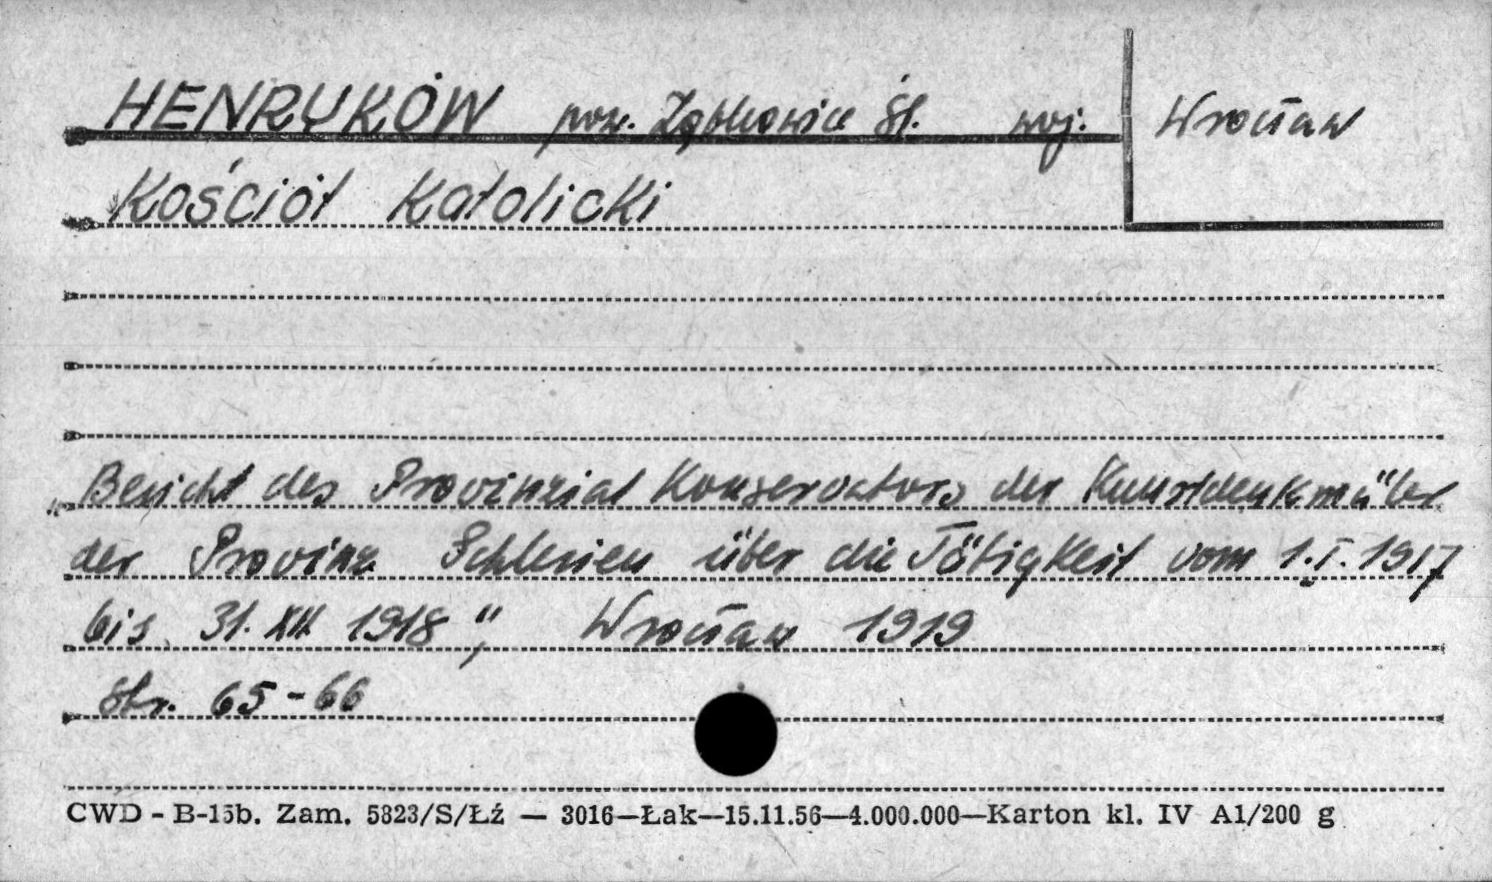 HENRYKÓW pow. Ząbkowice Śl. woj. Wrocław
Kościół Katolicki
„Bericht des Provinzial Konservators der Kunstdenkmäler
der Provinz Schlesien über die Tätigkeit vom 1.I.1917
bis 31.XII 1918", Wrocław 1919
Str. 65-66
CWD - B-15b. Zam. 5823/S/Łź — 3016—Łak—15.11.56—4.000.000—Karton kl. IV A1/200 g